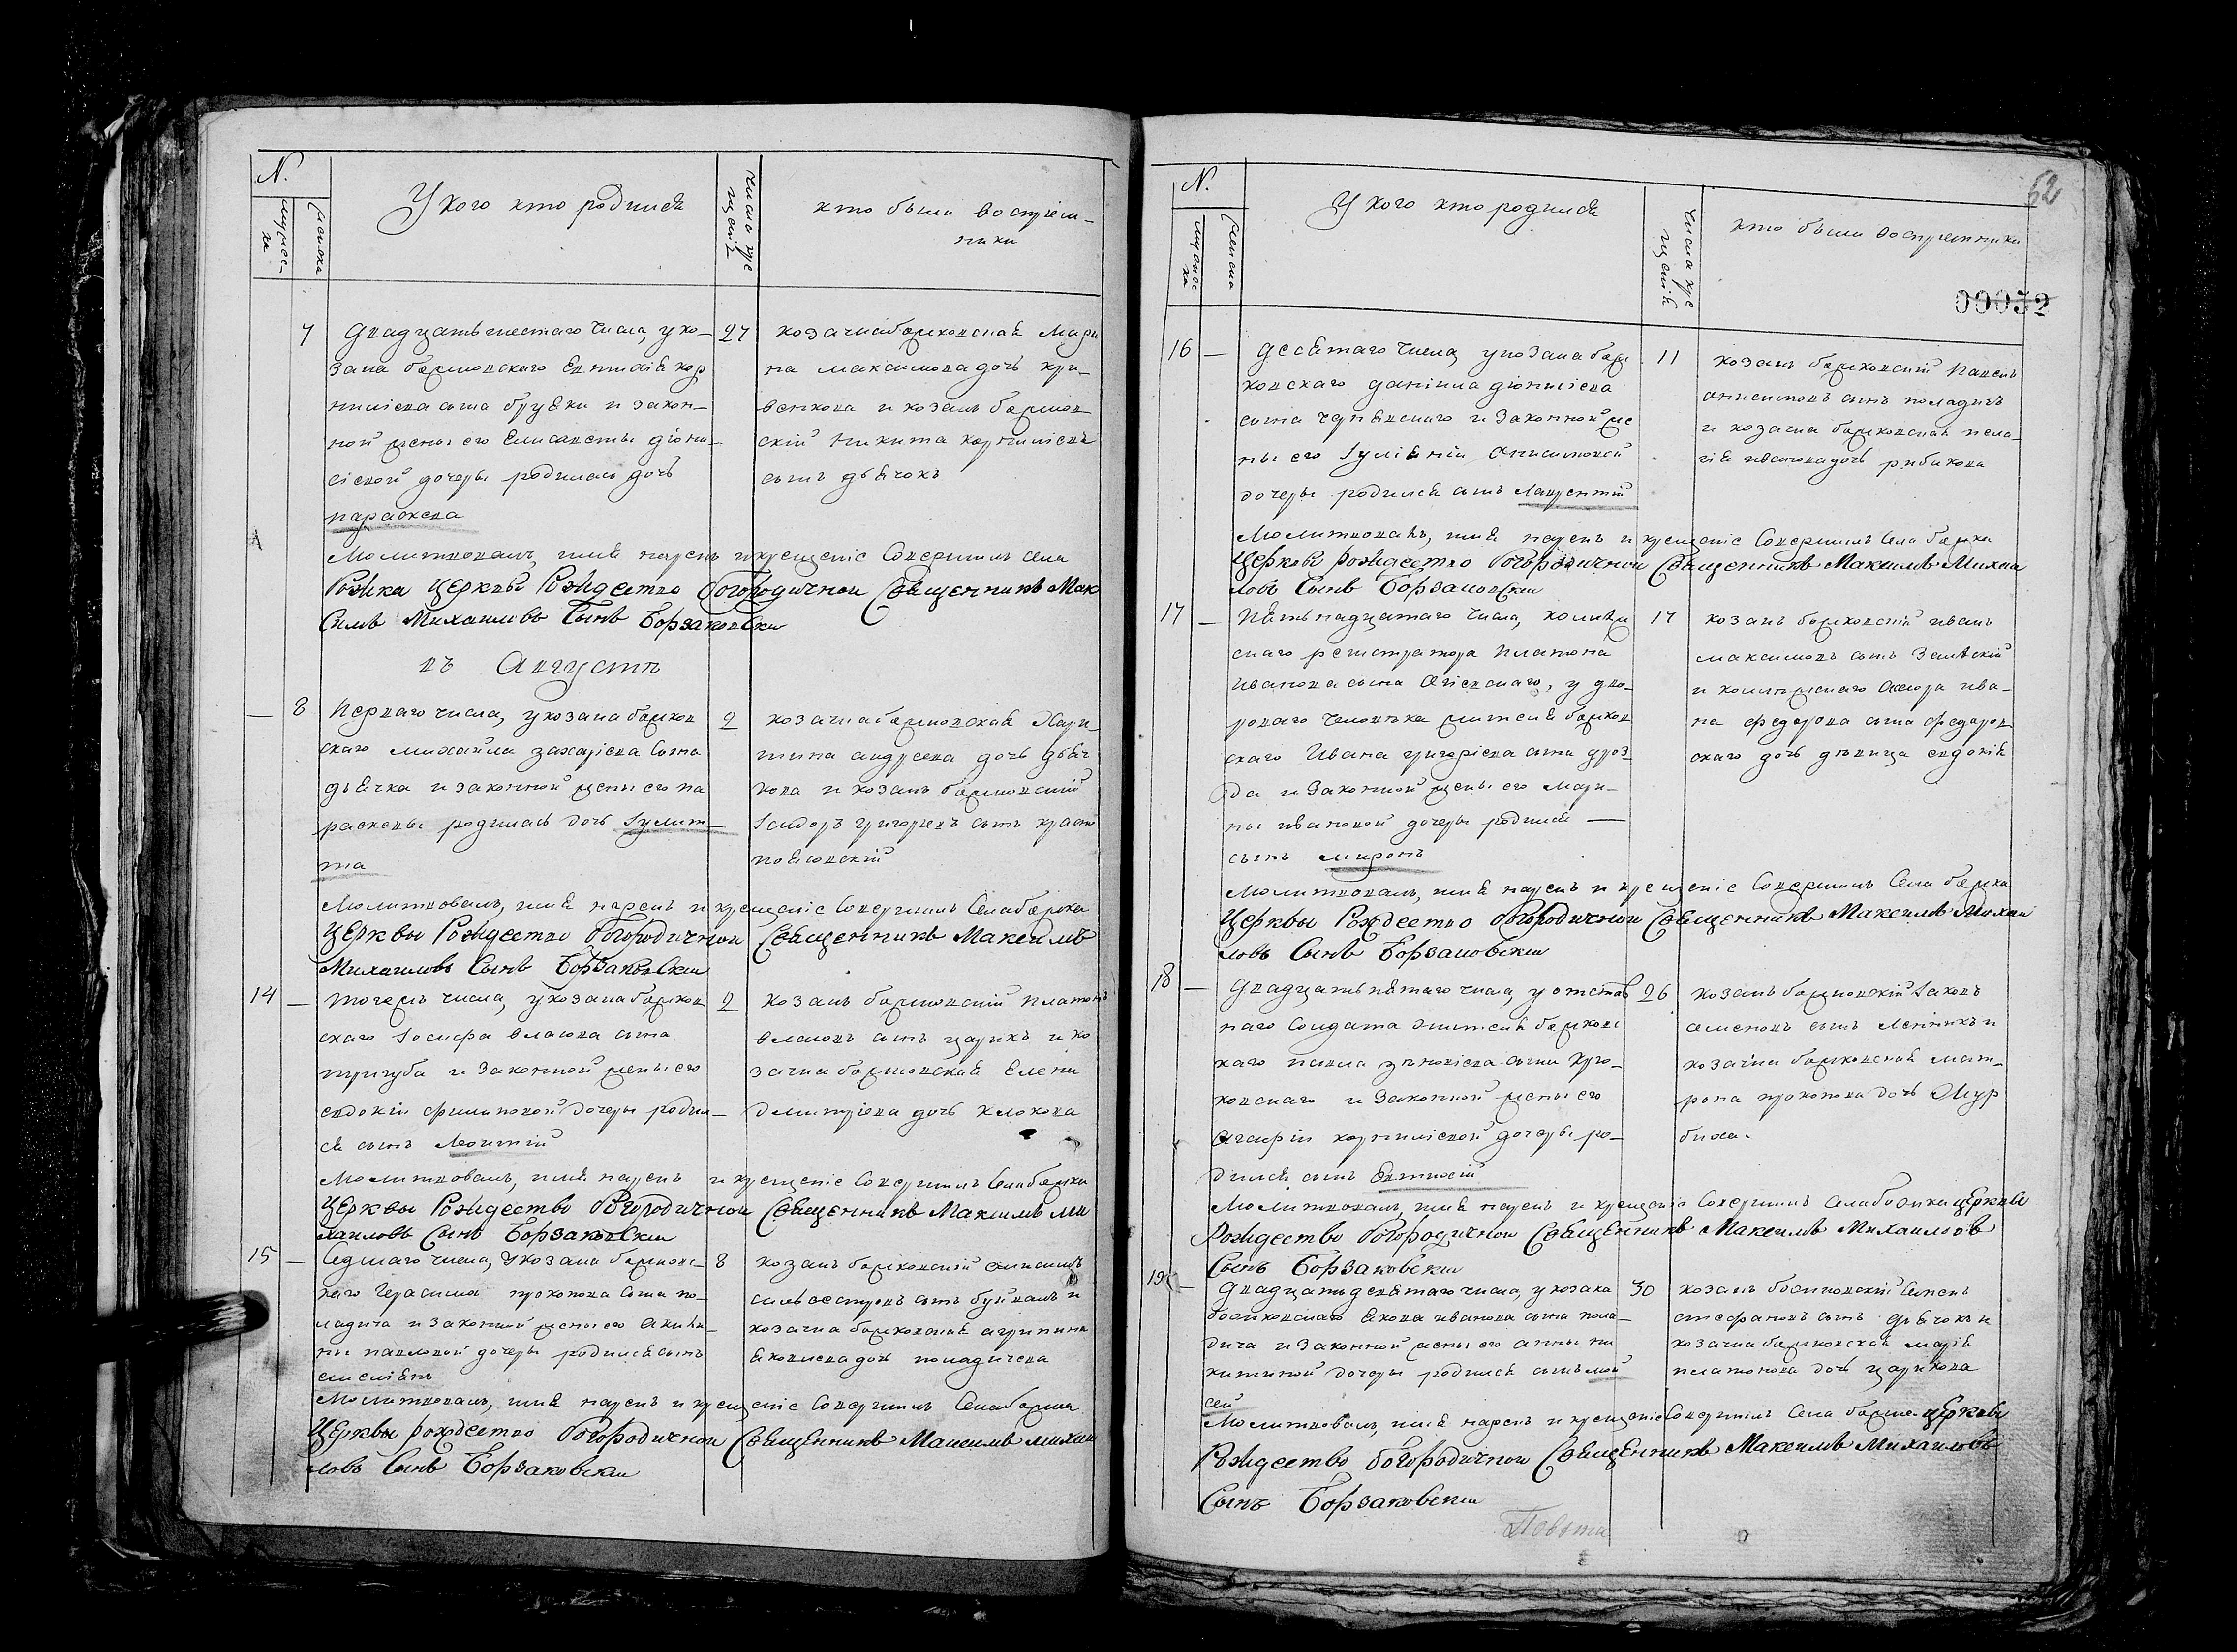 N.
мужеска
женска
У кого кто родился
число крещенія
кто были воспріем-
ники
7
двадцать шестаго числа, у ко-
зака божковскаго Евтихія кор
ниліева сына бруски и закон-
ной жены его Елисаветы діони-
сіевой дочеры родилась дочь
параскева
27
козачка божковская Мари
на максимова дочь кри-
венкова и козакъ божков
скій никита корниліевъ
сынъ дьячокъ
Молитвовалъ, имя нарекъ и крещеніе Совершилъ села
Божка Церквы Рождество Богородичной Священникъ Мак
симъ Михаиловъ Сынъ Борзаковски
въ Августѣ
8
Перваго числа, у козака божков
скаго михайла захаріева сына
дьячка и законной жены его па
раскевы родилась дочь Іулит-
та
2
козачка божковская Хари-
тина андреева дочь дьяч
кова и козакъ божковскій
Ісидоръ григорьевъ сынъ красно
поясовскій
Молитвовалъ, имя нарекъ и крещеніе Совершилъ Села божка
Церквы Рождество Богородичной Священникъ Максимъ
Михаиловъ Сынъ Борзаковски
14
тогожъ числа, у козака божков
скаго Іосифа власова сына
тригуба и Законной жены его
евдокіи филиповой дочеры родил-
ся сынъ Леонтій
2
козакъ божковскій платонъ
власовъ сынъ царикъ и ко
зачка божковская Елена
димитріева дочь клокова
Молитвовалъ, имя нарекъ и крещеніе Совершилъ Села божка
Церквы Рождество Богородичной Священникъ Максимъ Ми
хаиловъ Сынъ Борзаковски
15
Седмаго числа, у козака божковс-
каго Герасима прокопова Сына по-
ладича и законной жены его Акили-
ны павловой дочеры родился сынъ
емеліянъ
8
козакъ божковскій
сильвестровъ сынъ и
козачка божковская агрипина
яковлева дочь поладичева
Молитвовалъ, имя нарекъ и крещеніе Совершилъ Села божка
Церквы рождество Богородичной Священникъ Максимъ михаи
ловъ Сынъ Борзаковски
62
N.
мужеска
женска
У кого кто родился
Числа крещенія
кто были воспріемники
00052
16
десятаго Числа, у козака бож
ковскаго даніила діонисіева
сына чернявскаго и Законной же
ны его Іуліяніи Анисимовой
дочеры родился сынъ Лаврентій
11
козакъ божковскій павелъ
анисимовъ сынъ поладичъ
и козачка божковская пела-
гія иванова дочь рибикова
Молитвовалъ, имя нарекъ и крещеніе Совершилъ Села божка
Церквы рождество Богородичной Священникъ Максимъ Михаи
ловъ Сынъ Борзаковски
17
Пятьнадцатаго числа, колѣжс
скаго регистратора платона
Иванова сына , у дво-
роваго человѣка жителя божков
скаго Ивана григоріева сына дроз-
да и Законной жены его Мари-
ны ивановой дочеры родился
сынъ миронъ
17
козакъ божковскій иванъ
максимовъ сынъ
и колѣжскаго Асесора ива-
на федорова сына федоров
скаго дочь дѣвица евдокія
Молитвовалъ, имя нарекъ и крещеніе Совершилъ Села божка
Церквы Рождество Богородичной Священникъ Максимъ Михаи
ловъ Сынъ Борзаковски
18
двадцать пятаго числа, у отстав
наго Солдата жителя божковс
каго павла зѣновіева сына кру-
ковскаго и Законной жены его
Агафіи корниліевой дочеры ро-
дился сынъ Евтихій
26
козакъ божковскій Іаковъ
семеновъ сынъ и
козачка божковская мат-
рона прокопова дочь
Молитвовалъ, имя нарекъ и крещеніе Совершилъ Села божка церквы
Рождество Богородичной Священникъ Максимъ Михаиловъ
Сынъ Борзаковски
19
двадцать девятаго числа, у козака
божковскаго Якова иванова сына пола-
дича и Законной жены его анны ни
китиной дочеры родился сынъ мой
сей
30
козакъ божковскій Семенъ
стефановъ сынъ дьячокъ и
козачка божковская марія
платонова дочь царикова
Молитвовалъ, имя нарекъ и крещеніе Совершилъ Села божка церквы
Рождество богородичной Священникъ Максимъ Михаиловъ
Сынъ Борзаковски